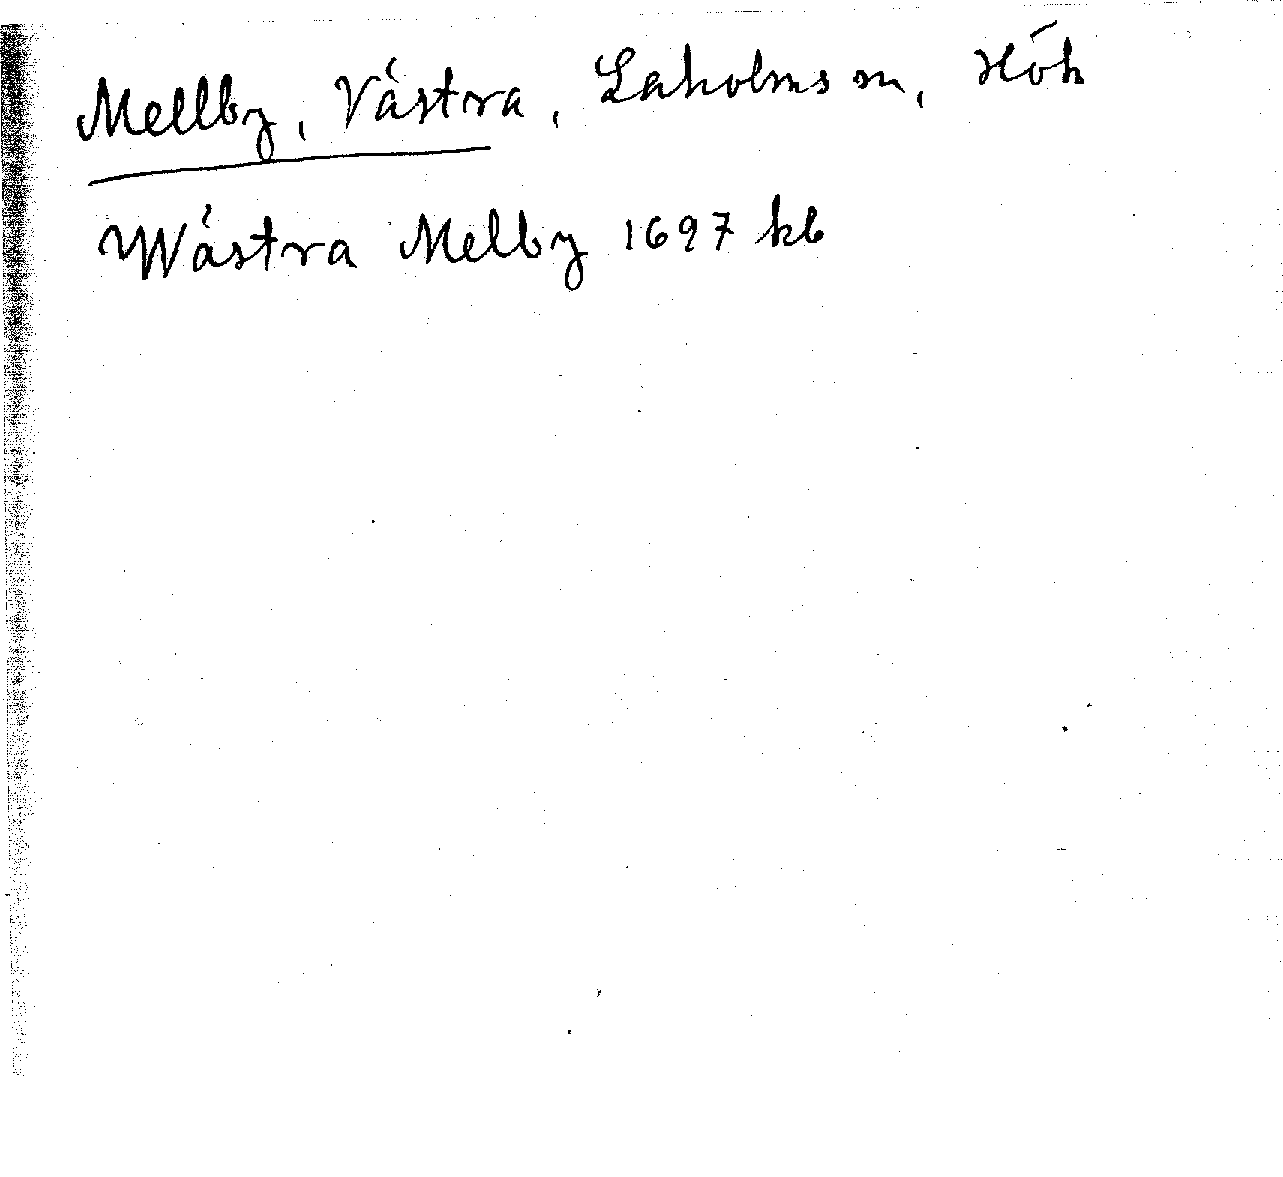 Mellby, Västra, Laholms sn, Höh
Wästra Melby 1697 kb